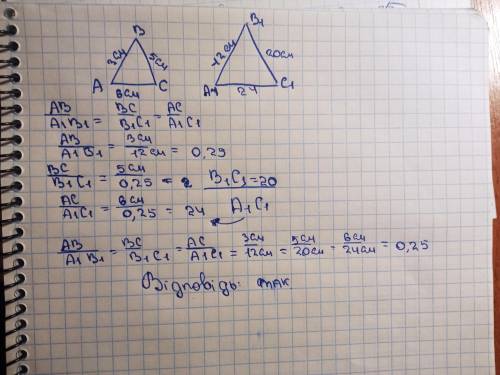 B
B1
3см
5см
12см
20см
A
C
6см
A1
C1
24
AB/A1B1 = BC/B1C1 = AC/A1C1
AB/A1B1 = 3см/12см = 0,25
BC/B1C1 = 5см/0,25 = B1C1 = 20
AC/A1C1 = 6см/0,25 = 24 A1C1
AB/A1B1 = BC/B1C1 = AC/A1C1 = 3см/12см = 5см/20см = 6см/24см = 0,25
Відповідь: так